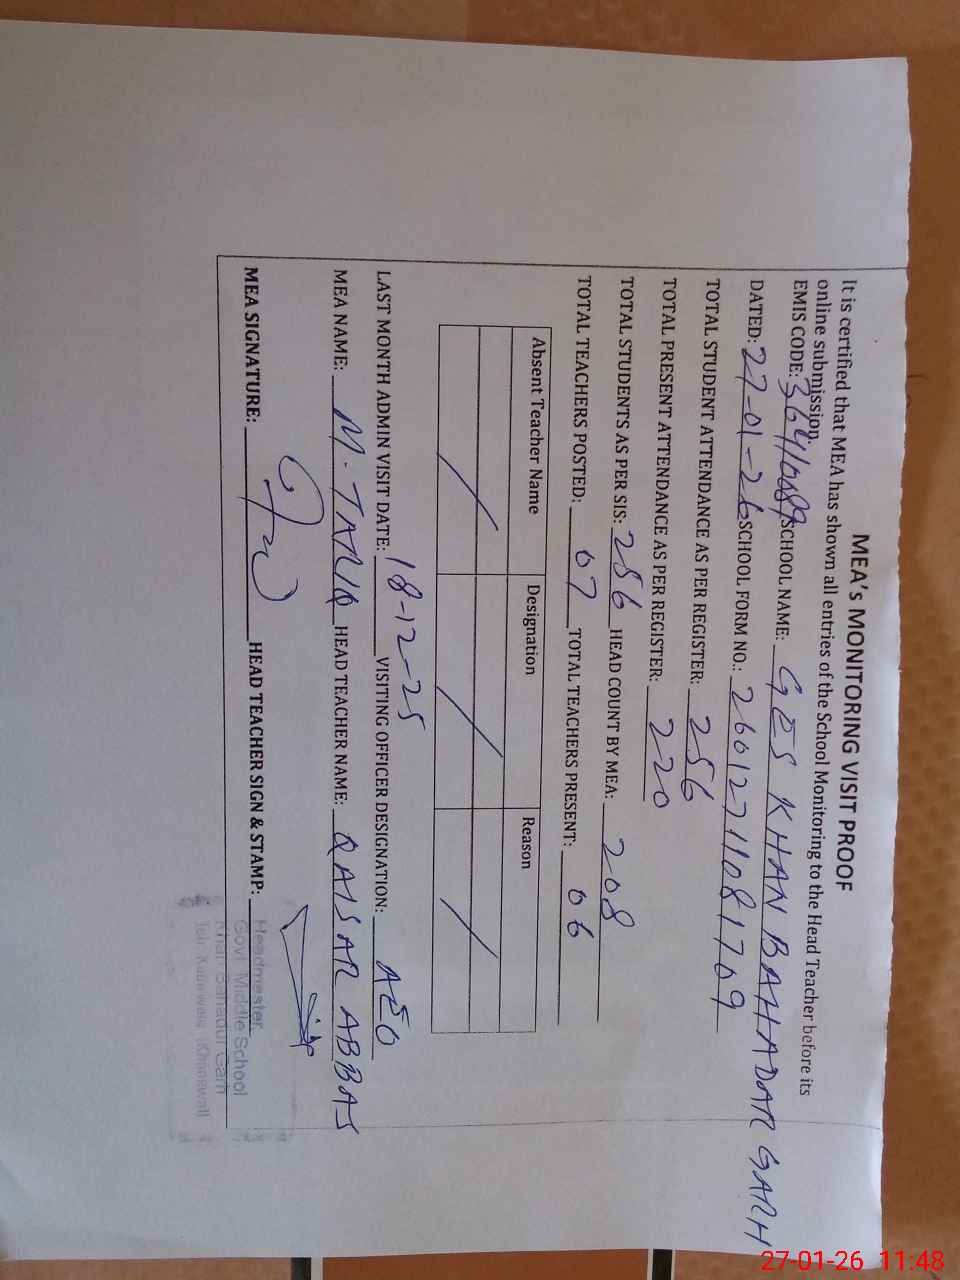 MEA's MONITORING VISIT PROOF
It is certified that MEA has shown all entries of the School Monitoring to the Head Teacher before its
online submission.
EMIS CODE: SCHOOL NAME: GES KHAN BAHADAR GARH
DATED: 27-01-26 SCHOOL FORM NO.: 26012711081709
TOTAL STUDENT ATTENDANCE AS PER REGISTER: 256
TOTAL PRESENT ATTENDANCE AS PER REGISTER: 220
TOTAL STUDENTS AS PER SIS: 256 HEAD COUNT BY MEA: 208
TOTAL TEACHERS POSTED: 07 TOTAL TEACHERS PRESENT: 06
Absent Teacher Name Designation Reason
LAST MONTH ADMIN VISIT DATE: 18-12-25 VISITING OFFICER DESIGNATION: AEO
MEA NAME: M. TARIQ HEAD TEACHER NAME: QAISAR ABBAS
MEA SIGNATURE: HEAD TEACHER SIGN & STAMP:
Headmester
Govt. Middle School
Khan Bahadur Garh
27-01-26 11:48